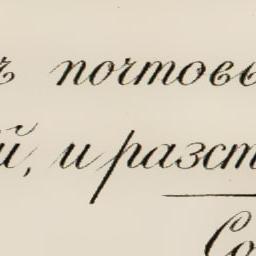 ъ почтовы
й, и разст
Со